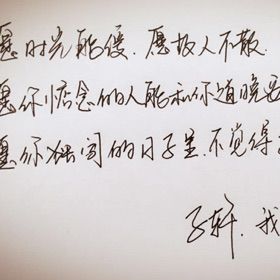 愿时光能缓.愿故人不散.
愿你惦念的人能和你道晚安
愿你独闯的日子里.不觉得
子轩.我